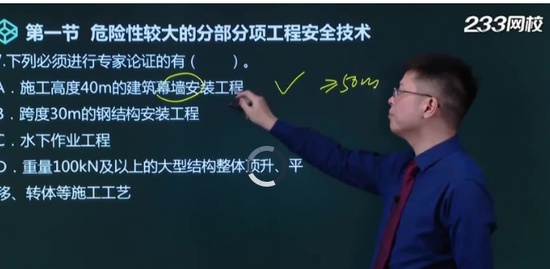 第一节 危险性较大的分部分项工程安全技术
233网校
.下列必须进行专家论证的有（ ）。
A．施工高度40m的建筑幕墙安装工程
≥50m
B．跨度30m的钢结构安装工程
C．水下作业工程
D．重量100kN及以上的大型结构整体顶升、平
移、转体等施工工艺